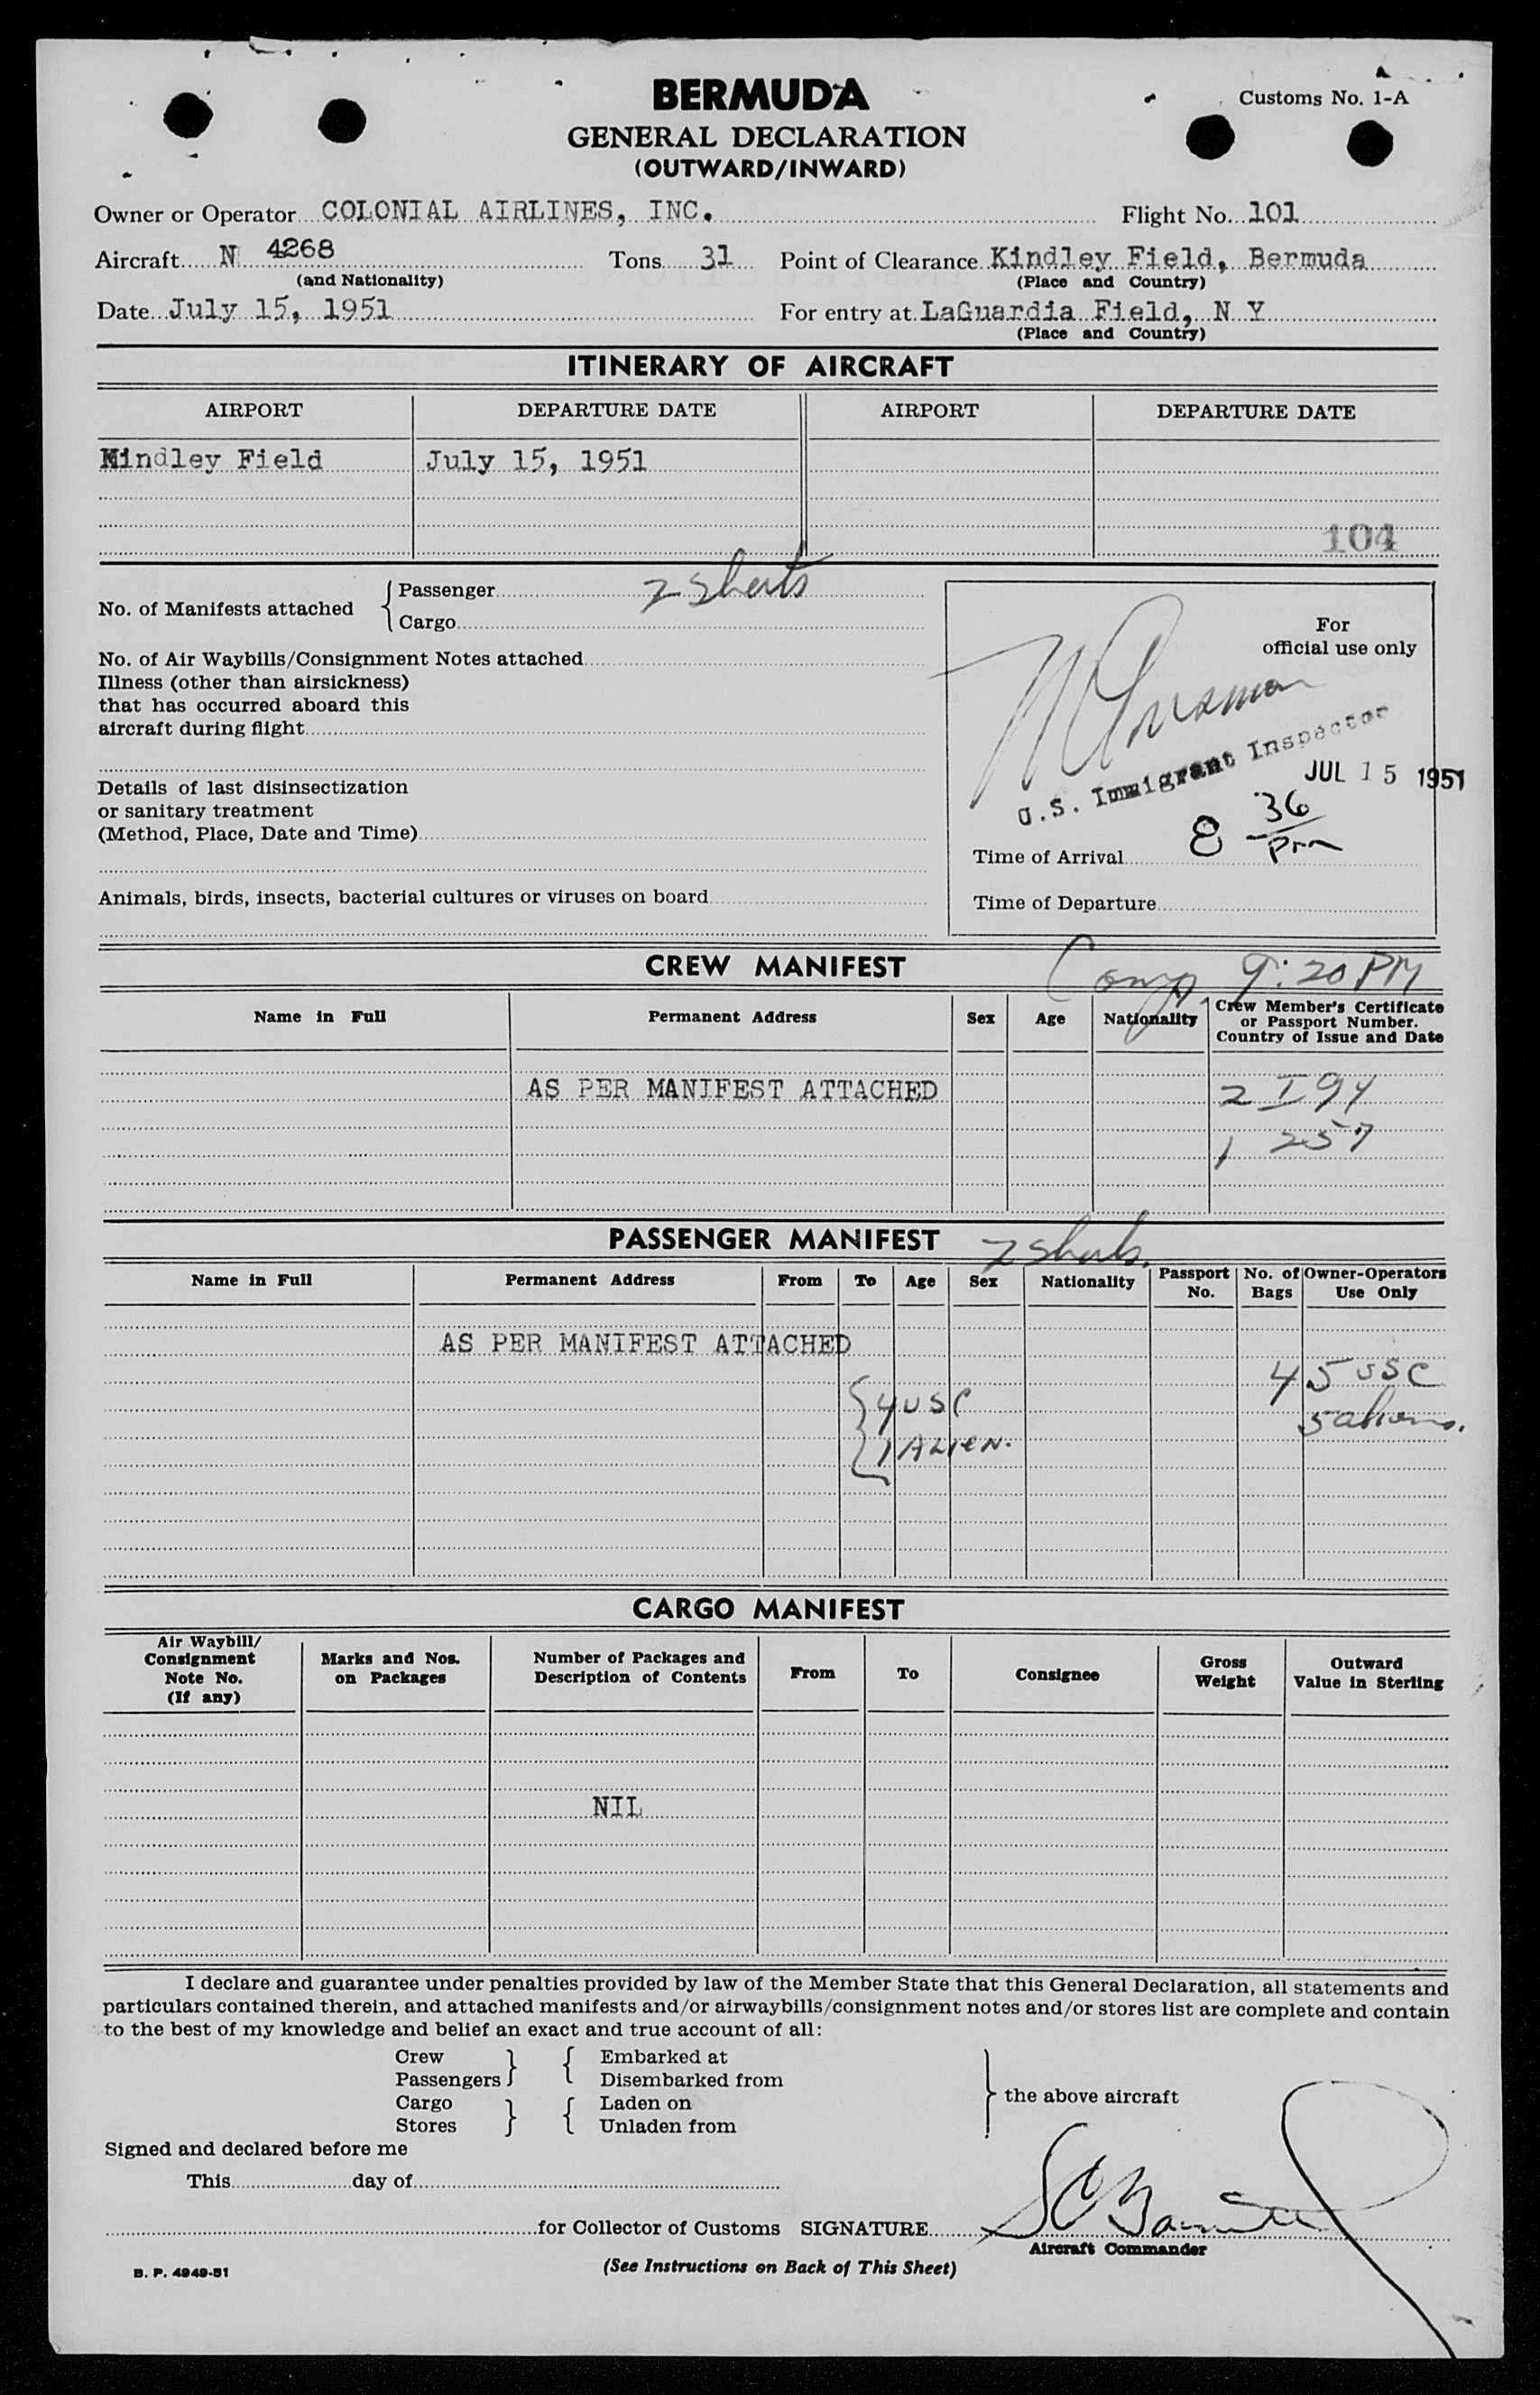 BERMUDA
Customs No. 1-A
GENERAL DECLARATION
(OUTWARD/INWARD)
Owner or Operator COLONIAL AIRLINES, INC. Flight No. 101
Aircraft N 4268 Tons 31 Point of Clearance Kindley Field, Bermuda
(and Nationality) (Place and Country)
Date July 15, 1951 For entry at LaGuardia Field, N Y
(Place and Country)
ITINERARY OF AIRCRAFT
AIRPORT DEPARTURE DATE AIRPORT DEPARTURE DATE
Mindley Field July 15, 1951
104
No. of Manifests attached { Passenger 2 sheets
Cargo
For
official use only
No. of Air Waybills/Consignment Notes attached
Illness (other than airsickness)
that has occurred aboard this
aircraft during flight
U.S. Immigrant Inspector
JUL 15 1951
Details of last disinsectization
or sanitary treatment
(Method, Place, Date and Time)
Time of Arrival 8 36 pm
Animals, birds, insects, bacterial cultures or viruses on board
Time of Departure
CREW MANIFEST Comp. 9:20 PM
Name in Full Permanent Address Sex Age Nationality Crew Member's Certificate
or Passport Number.
Country of Issue and Date
AS PER MANIFEST ATTACHED 2 I 94
1 257
PASSENGER MANIFEST 2 sheets.
Name in Full Permanent Address From To Age Sex Nationality Passport No. No. of Bags Owner-Operators Use Only
AS PER MANIFEST ATTACHED
45 USC
{ 4 USC 5 aliens.
1 ALIEN.
CARGO MANIFEST
Air Waybill/
Consignment
Note No.
(If any)
Marks and Nos.
on Packages
Number of Packages and
Description of Contents
From To Consignee
Gross
Weight
Outward
Value in Sterling
NIL
I declare and guarantee under penalties provided by law of the Member State that this General Declaration, all statements and
particulars contained therein, and attached manifests and/or airwaybills/consignment notes and/or stores list are complete and contain
to the best of my knowledge and belief an exact and true account of all:
Crew } { Embarked at
Passengers Disembarked from
} the above aircraft
Cargo } { Laden on
Stores Unladen from
Signed and declared before me
This day of
for Collector of Customs SIGNATURE
Aircraft Commander
B. P. 4949-51
(See Instructions on Back of This Sheet)